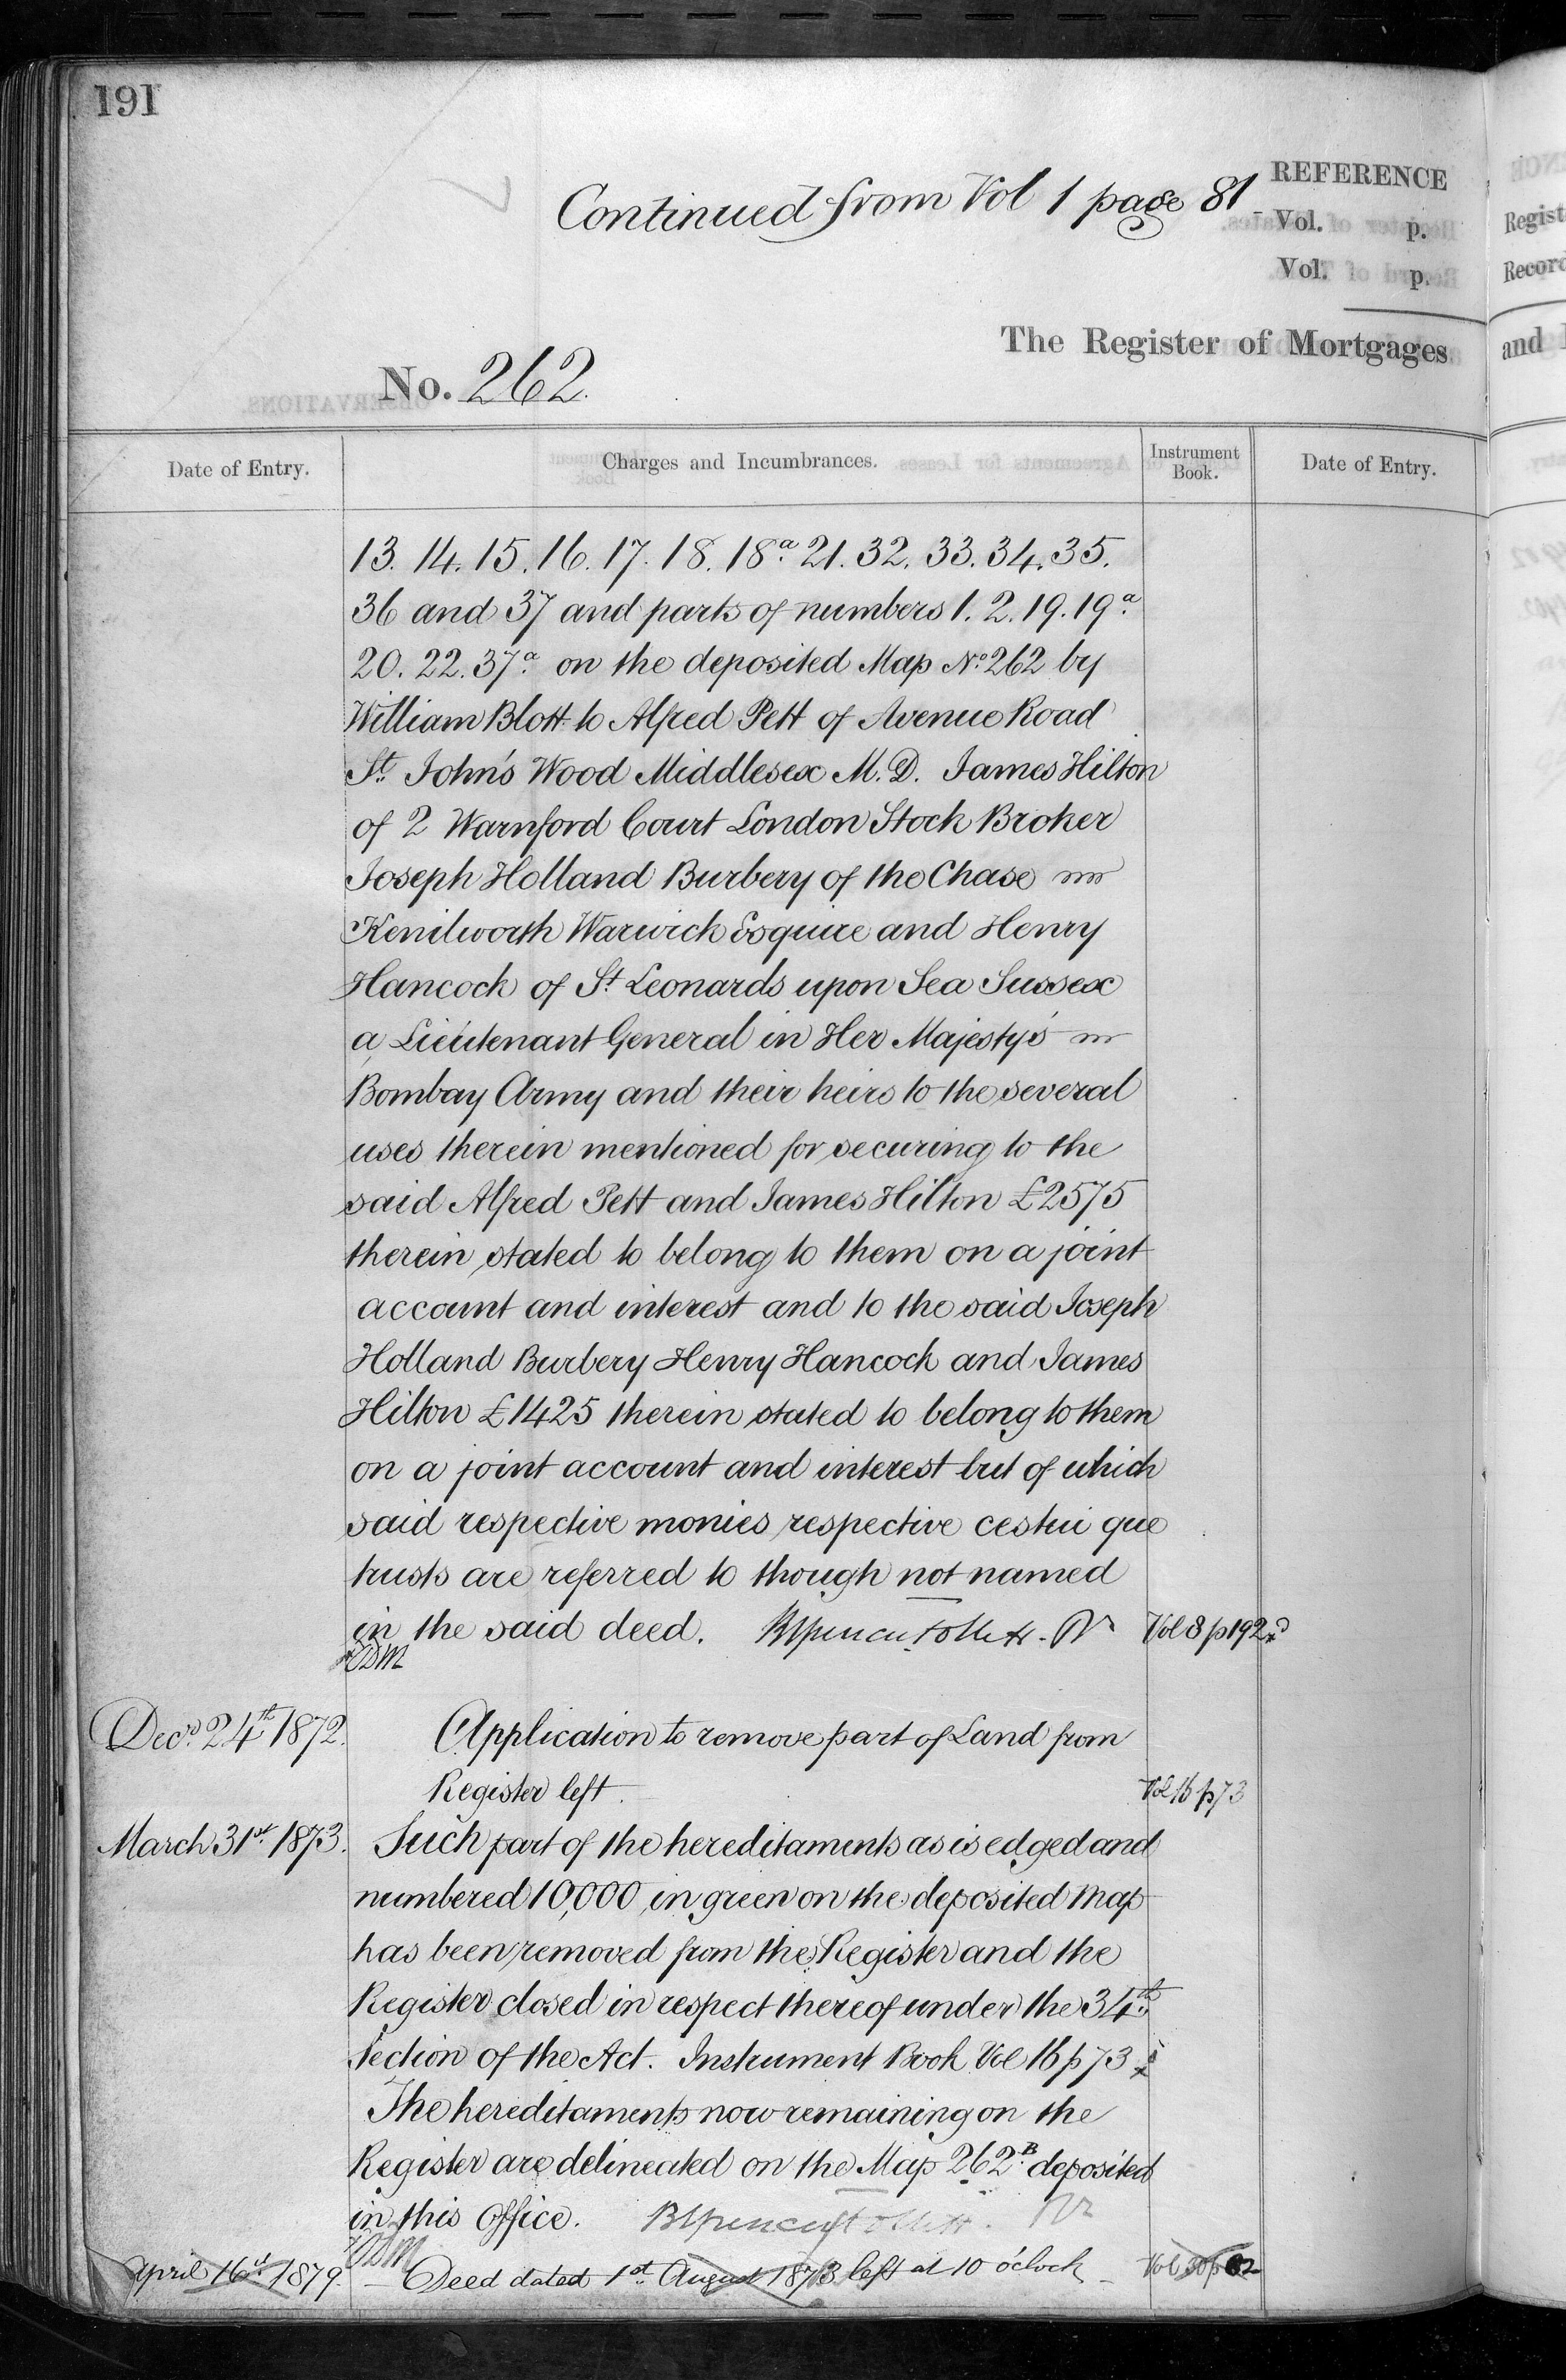 191
Continued from Vol 1 page 81
REFERENCE
Vol. p.
Vol. p.
The Register of Mortgages
and
No. 262.
Date of Entry.
Charges and Incumbrances.
Instrument Book.
Date of Entry.
13. 14. 15. 16. 17. 18. 18a. 21. 32. 33. 34. 35.
36 and 37 and parts of numbers 1. 2. 19. 19a.
20. 22. 37a. on the deposited Map No. 262 by
William Blott to Alfred Pett of Avenue Road
St. John's Wood Middlesex M.D. James Hilton
of 2 Warnford Court London Stock Broker
Joseph Holland Burbery of the Chase
Kenilworth Warwick Esquire and Henry
Hancock of St. Leonards upon Sea Sussex
a Lieutenant General in Her Majesty's
Bombay Army and their heirs to the several
uses therein mentioned for securing to the
said Alfred Pett and James Hilton £2575
therein stated to belong to them on a joint
account and interest and to the said Joseph
Holland Burbery Henry Hancock and James
Hilton £1425 therein stated to belong to them
on a joint account and interest but of which
said respective monies respective cestui que
trusts are referred to though not named
in the said deed. Vol 8 p 192
Decr. 24th 1872. Application to remove part of Land from
Register left. Vol 16 p 73
March 31st. 1873. Such part of the hereditaments as is edged and
numbered 10,000 in green on the deposited Map
has been removed from the Register and the
Register closed in respect thereof under the 34th.
Section of the Act. Instrument Book Vol 16 p 73
The hereditaments now remaining on the
Register are delineated on the Map 262B. deposited
in this Office.
April 16 1879. Deed dated 1st. August 1873 left at 10 o'clock Vol 30 p